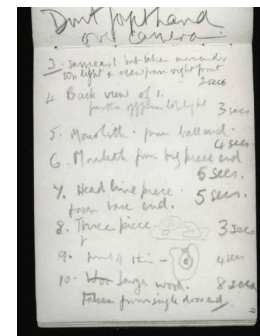 Don't forget hand
on camera
3. Same as 1 but taken
top light & view from right front
2 secs
4 Back view of 1.
top light
3 secs
5. Monolith - from ball end.
4 secs
6. Monolith from big piece end
5 secs.
7. Head line piece.
from base end.
5 secs.
8. Three piece.
3 secs
9.
4 secs
10. Large wood.
8 secs
Taken from single end.